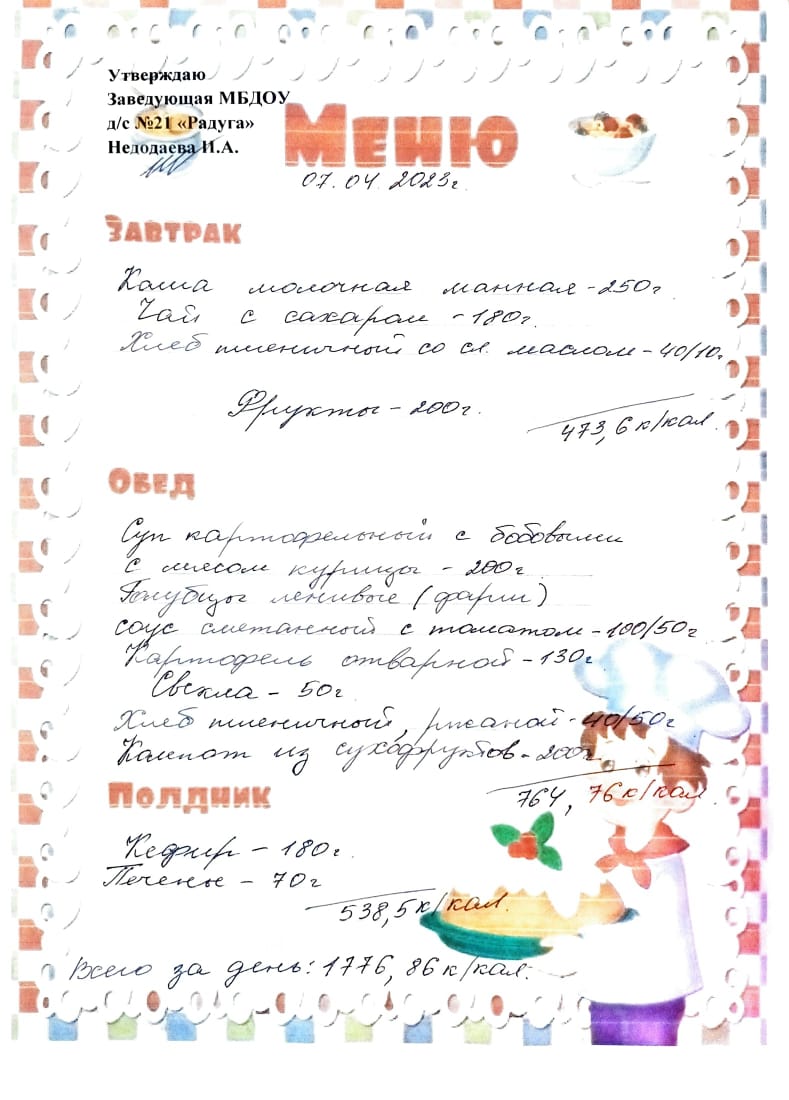 Утверждаю
Заведующая МБДОУ
д/с №21 «Радуга»
Недодаева И.А.
Меню
07.04.2023г.
Завтрак
Каша молочная манная - 250г
Чай с сахаром - 180г.
Хлеб пшеничный со сл. маслом - 40/10г.
Фрукты - 200г.
473,6 к/кал.
Обед
Суп картофельный с бобовыми
с мясом курицы - 200г
Голубцы ленивые (фарш)
соус сметанный с томатом - 100/50г
Картофель отварной - 130г
Свекла - 50г
Хлеб пшеничный, ржаной - 40/50г
Компот из сухофруктов - 200г.
764,76 к/кал.
Полдник
Кефир - 180г.
Печенье - 70г
538,5 к/кал.
Всего за день: 1776,86 к/кал.